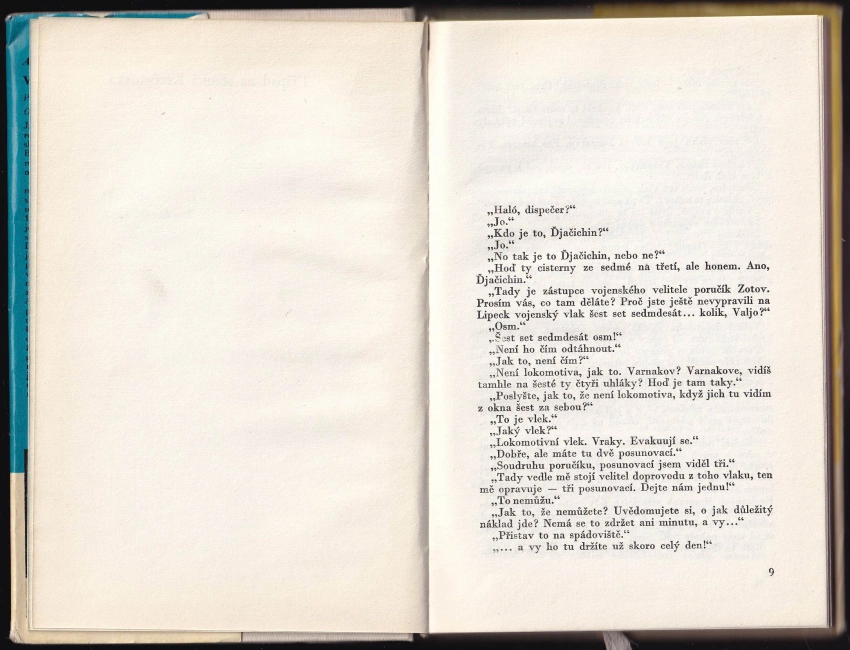 „Haló, dispečer?“
„Jo.“
„Kdo je to, Ďjačichin?“
„Jo.“
„No tak je to Ďjačichin, nebo ne?“
„Hoď ty cisterny ze sedmé na třetí, ale honem. Ano,
Ďjačichin.“
„Tady je zástupce vojenského velitele poručík Zotov.
Prosím vás, co tam děláte? Proč jste ještě nevypravili na
Lipeck vojenský vlak šest set sedmdesát... kolik, Valjo?“
„Osm.“
„Šest set sedmdesát osm!“
„Není ho čím odtáhnout.“
„Jak to, není čím?“
„Není lokomotiva, jak to. Varnakov? Varnakove, vidíš
tamhle na šesté ty čtyři uhláky? Hoď je tam taky.“
„Poslyšte, jak to, že není lokomotiva, když jich tu vidím
z okna šest za sebou?“
„To je vlek.“
„Jaký vlek?“
„Lokomotivní vlek. Vraky. Evakuují se.“
„Dobře, ale máte tu dvě posunovací.“
„Soudruhu poručíku, posunovací jsem viděl tři.“
„Tady vedle mě stojí velitel doprovodu z toho vlaku, ten
mě opravuje — tři posunovací. Dejte nám jednu!“
„To nemůžu.“
„Jak to, že nemůžete? Uvědomujete si, o jak důležitý
náklad jde? Nemá se to zdržet ani minutu, a vy...“
„Přistav to na spádoviště.“
„... a vy ho tu držíte už skoro celý den!“
9